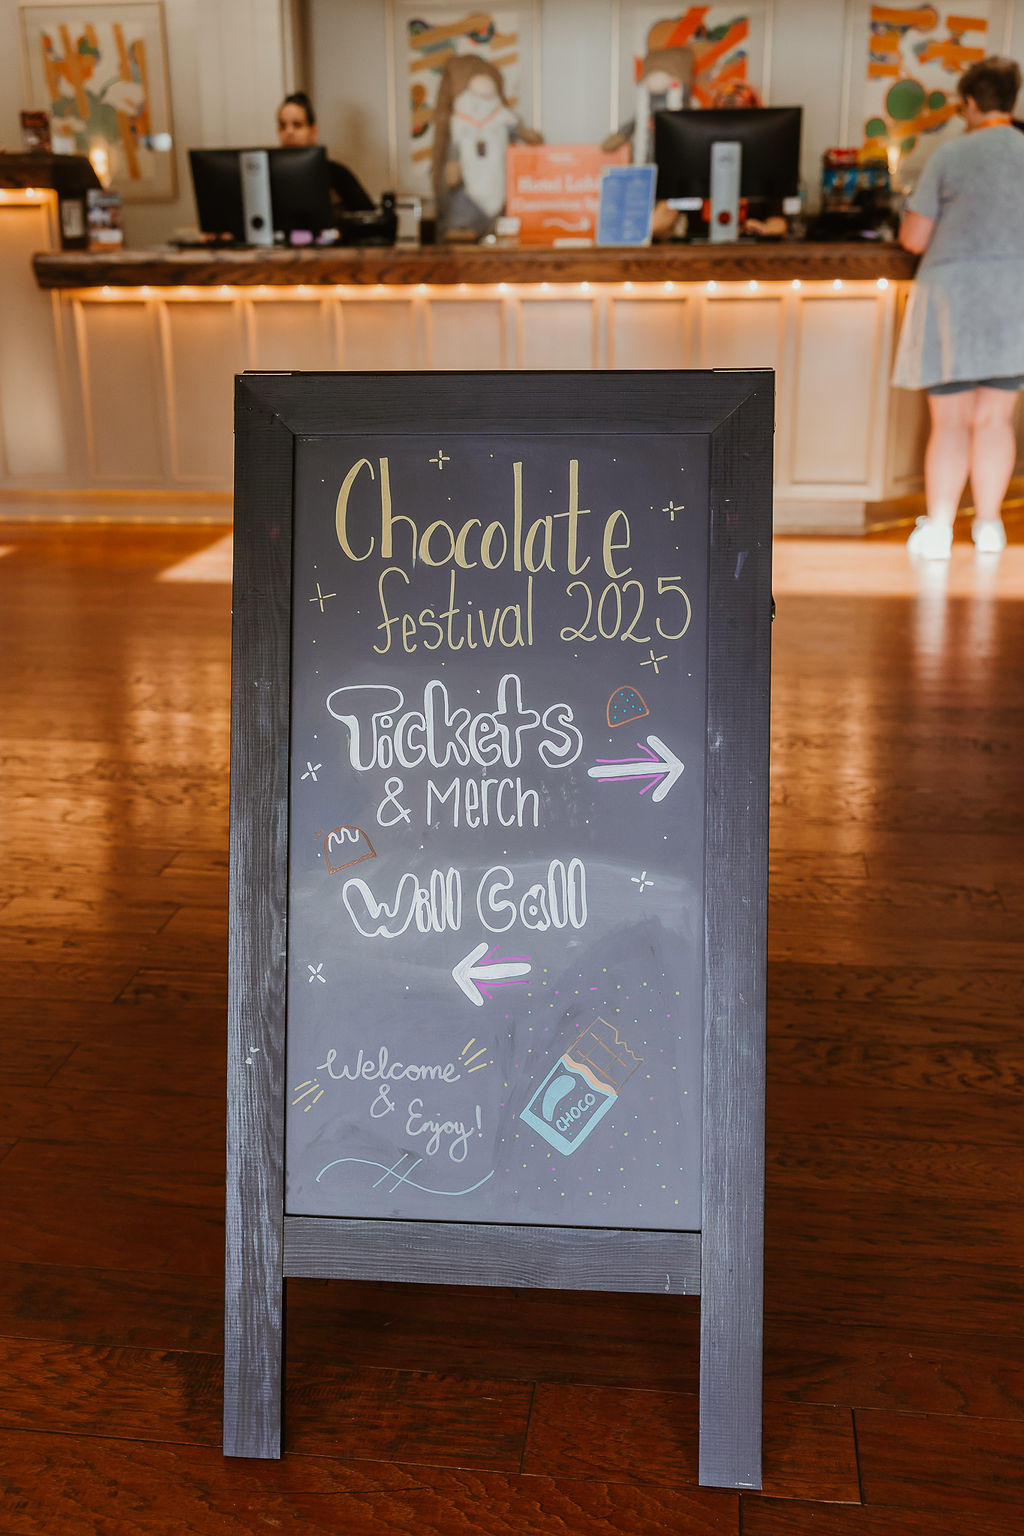 Hotel Lobby
Chocolate
festival 2025
Tickets
& Merch
Will Call
Welcome
& Enjoy!
CHOCO